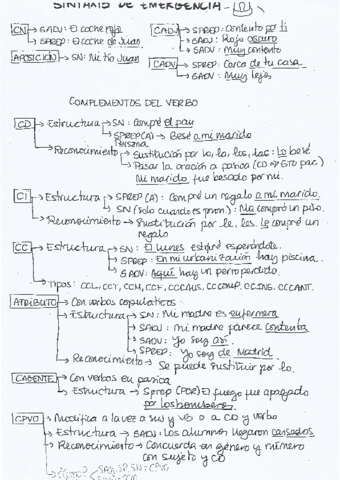 SINTAXIS DE EMERGENCIA
CN → SADJ: El coche rojo
→ SPREP: El coche de Juan
APOSICIÓN → SN: Mi tío Juan
CADJ → SPREP: Contento por ti
→ SADJ: Rojo oscuro
→ SADV: Muy contento
CADV → SPREP: Cerca de tu casa.
→ SADV: Muy lejos
COMPLEMENTOS DEL VERBO
CD → Estructura → SN: Compré el pan
→ SPREP(A) → Besé a mi marido
Persona
→ Reconocimiento → Sustitución por lo, la, los, las: Lo besé
→ Pasar la oración a pasiva (CD → Sto pac.)
Mi marido fue besado por mí.
CI → Estructura → SPREP (A): Compré un regalo a mi marido.
→ SN (solo cuando es pron.): Me compró un piso.
→ Reconocimiento → Sustitución por le, les. Le compré un
regalo
CC → Estructura → SN: El lunes estaré esperándote.
→ SPREP: En mi urbanización hay piscina.
→ SADV: Aquí hay un perro perdido.
→ Tipos: CCL, CCT, CCM, CCF, CCCAUS, CCCOMP, CCINS, CCCANT.
ATRIBUTO → Con verbos copulativos
→ Estructura → SN: Mi madre es enfermera
→ SADJ: Mi madre parece contenta
→ SADV: Yo soy así.
→ SPREP: Yo soy de Madrid.
→ Reconocimiento → Se puede sustituir por lo.
CAGENTE → Con verbos en pasiva
→ Estructura → SPrep (POR) El fuego fue apagado
por los bomberos
CPVO → Modifica a la vez a suj y vb o a CD y verbo
→ Estructura → SADJ: Los alumnos llegaron cansados
→ Reconocimiento → Concuerda en género y número
con sujeto y CD
SADJ, SP, SN: CPVO